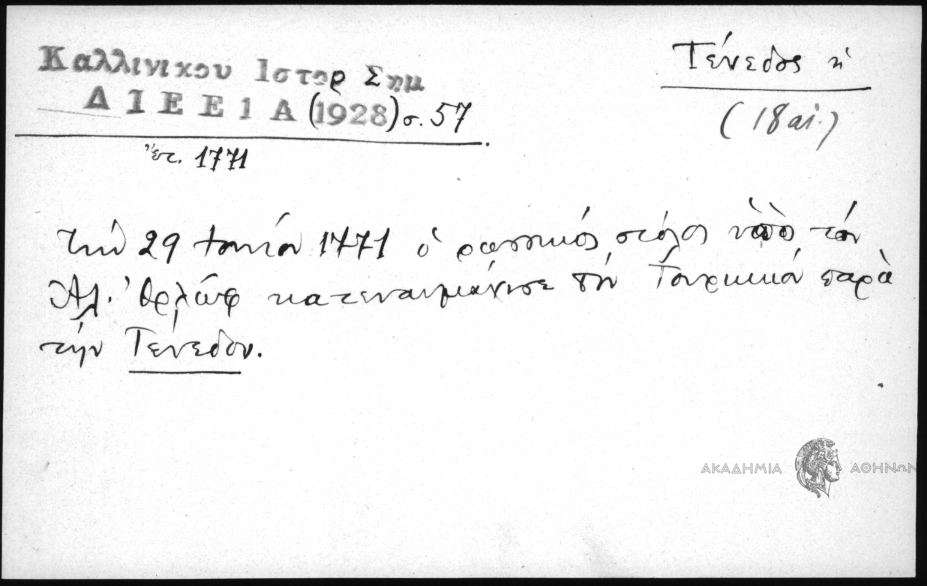 Καλλινικου Ιστορ Σημ
Δ Ι Ε Ε 1 Α (1928) σ. 57
ἔτ. 1771
Τένεδος ἡ
(18 αἰ.)
τὴν 29 Ἰουνίου 1771 ὁ ρωσσικός στόλος ὑπὸ τόν
Ἀλ. Ὀρλώφ κατεναυμάχησε τὸν Τουρκικόν παρὰ
τήν Τένεδον.
ΑΚΑΔΗΜΙΑ ΑΘΗΝΩΝ